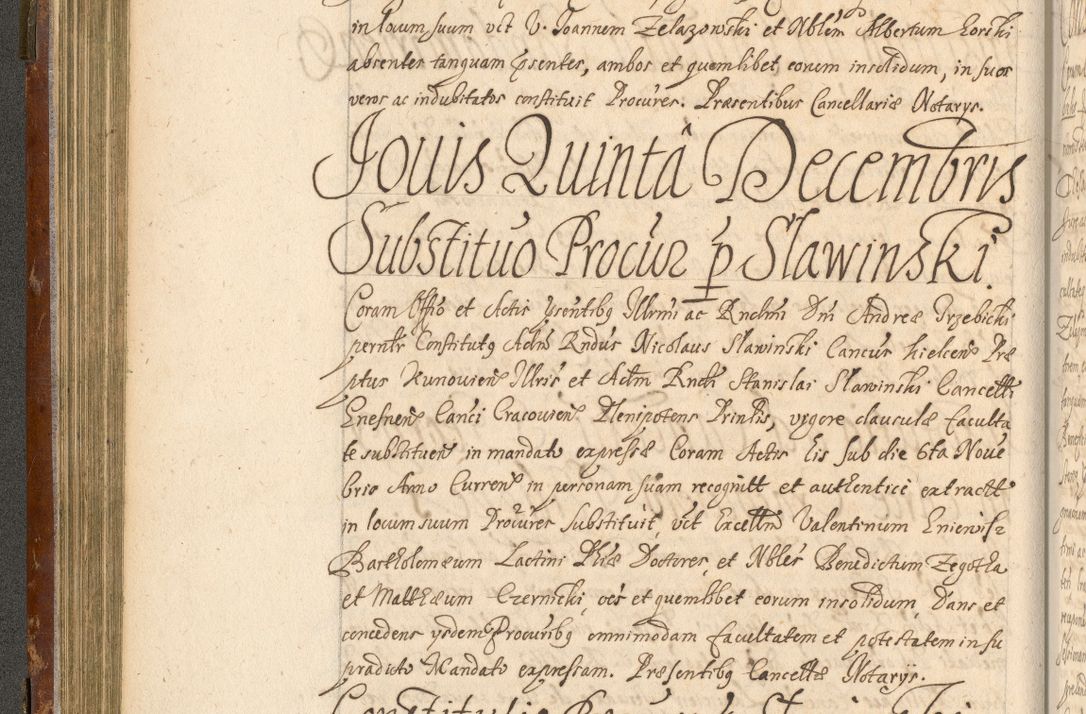 in locum suum vct V. Joannem Zelazowski et Nblem Albertum Gorski
absentes tanquam psentes, ambos et quemlibet eorum insolidum, in suos
veros ac indubitatos constituit Procures. Praesentibus Cancellariæ Notarys.
Jouis Quintâ Decembris
Substituo Procur p Slawinski.
Coram Offio et Actis psentibq Illrmi ac Rndmi Dni Andreæ Trzebicki
pernlr Constitutq Adm Rndus Nicolaus Slawinski Cancus Kielcen Præ
ptus Kunouien Illris et Adm Rndi Stanislai Slawinski Cancelli
Gnesnen Canci Cracouien Plenipotens Prinlis, vigore clausulæ faculta
te substituen in mandato expressæ Coram Actis Eis sub die 6ta Noue
bris Anno Curren in personam suam recognitt et authentice extractt
in locum suum Procures Substituit, vct Excellm Valentinum
Bartholomæum Lactini Phiæ Doctores, et Nbles Benedictum Zegotha
et Matthæum Czernicki, oes et quemlibet eorum insolidum, Dans et
concedens ysdem Procuribq omnimodam facultatem et potestatem in su
pradicto Mandato expressam. Præsentibq Cancellæ Notarijs.